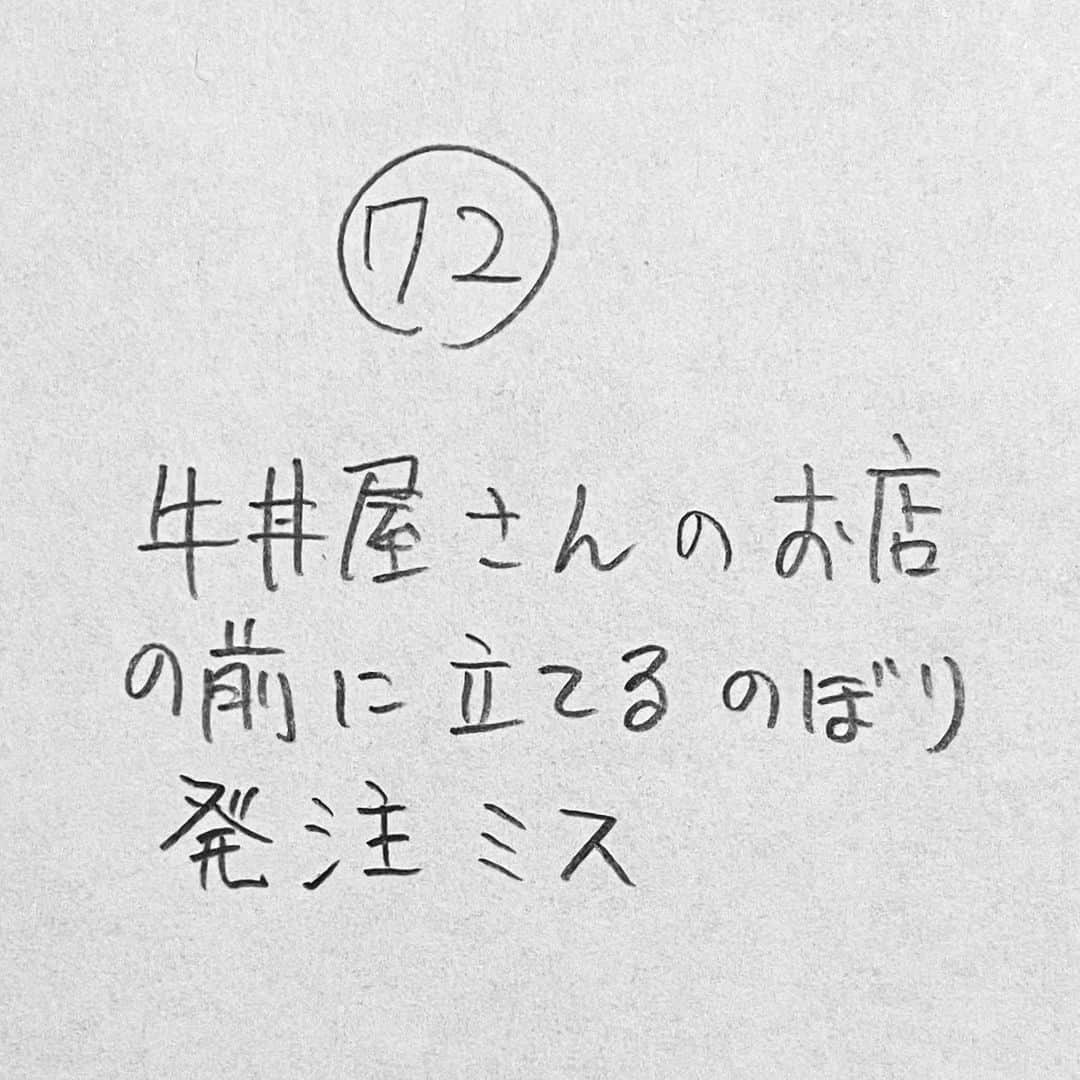 72
牛丼屋さんのお店
の前に立てるのぼり
発注ミス